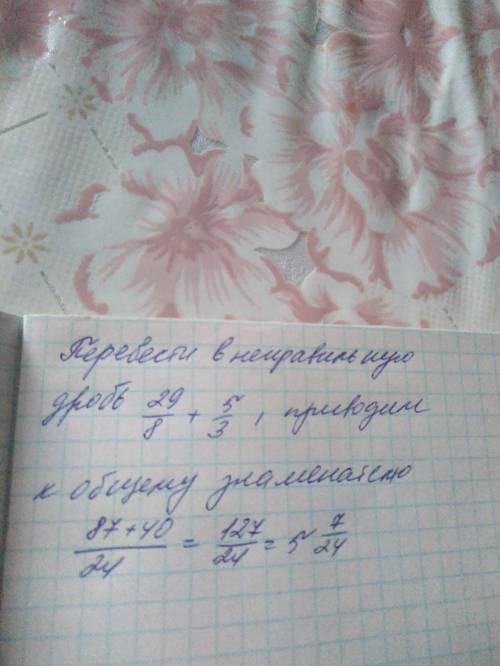 Перевести в неправильную
дробь 29/8 + 5/3, приводим
к общему знаменателю
87+40/24 = 127/24 = 5 7/24